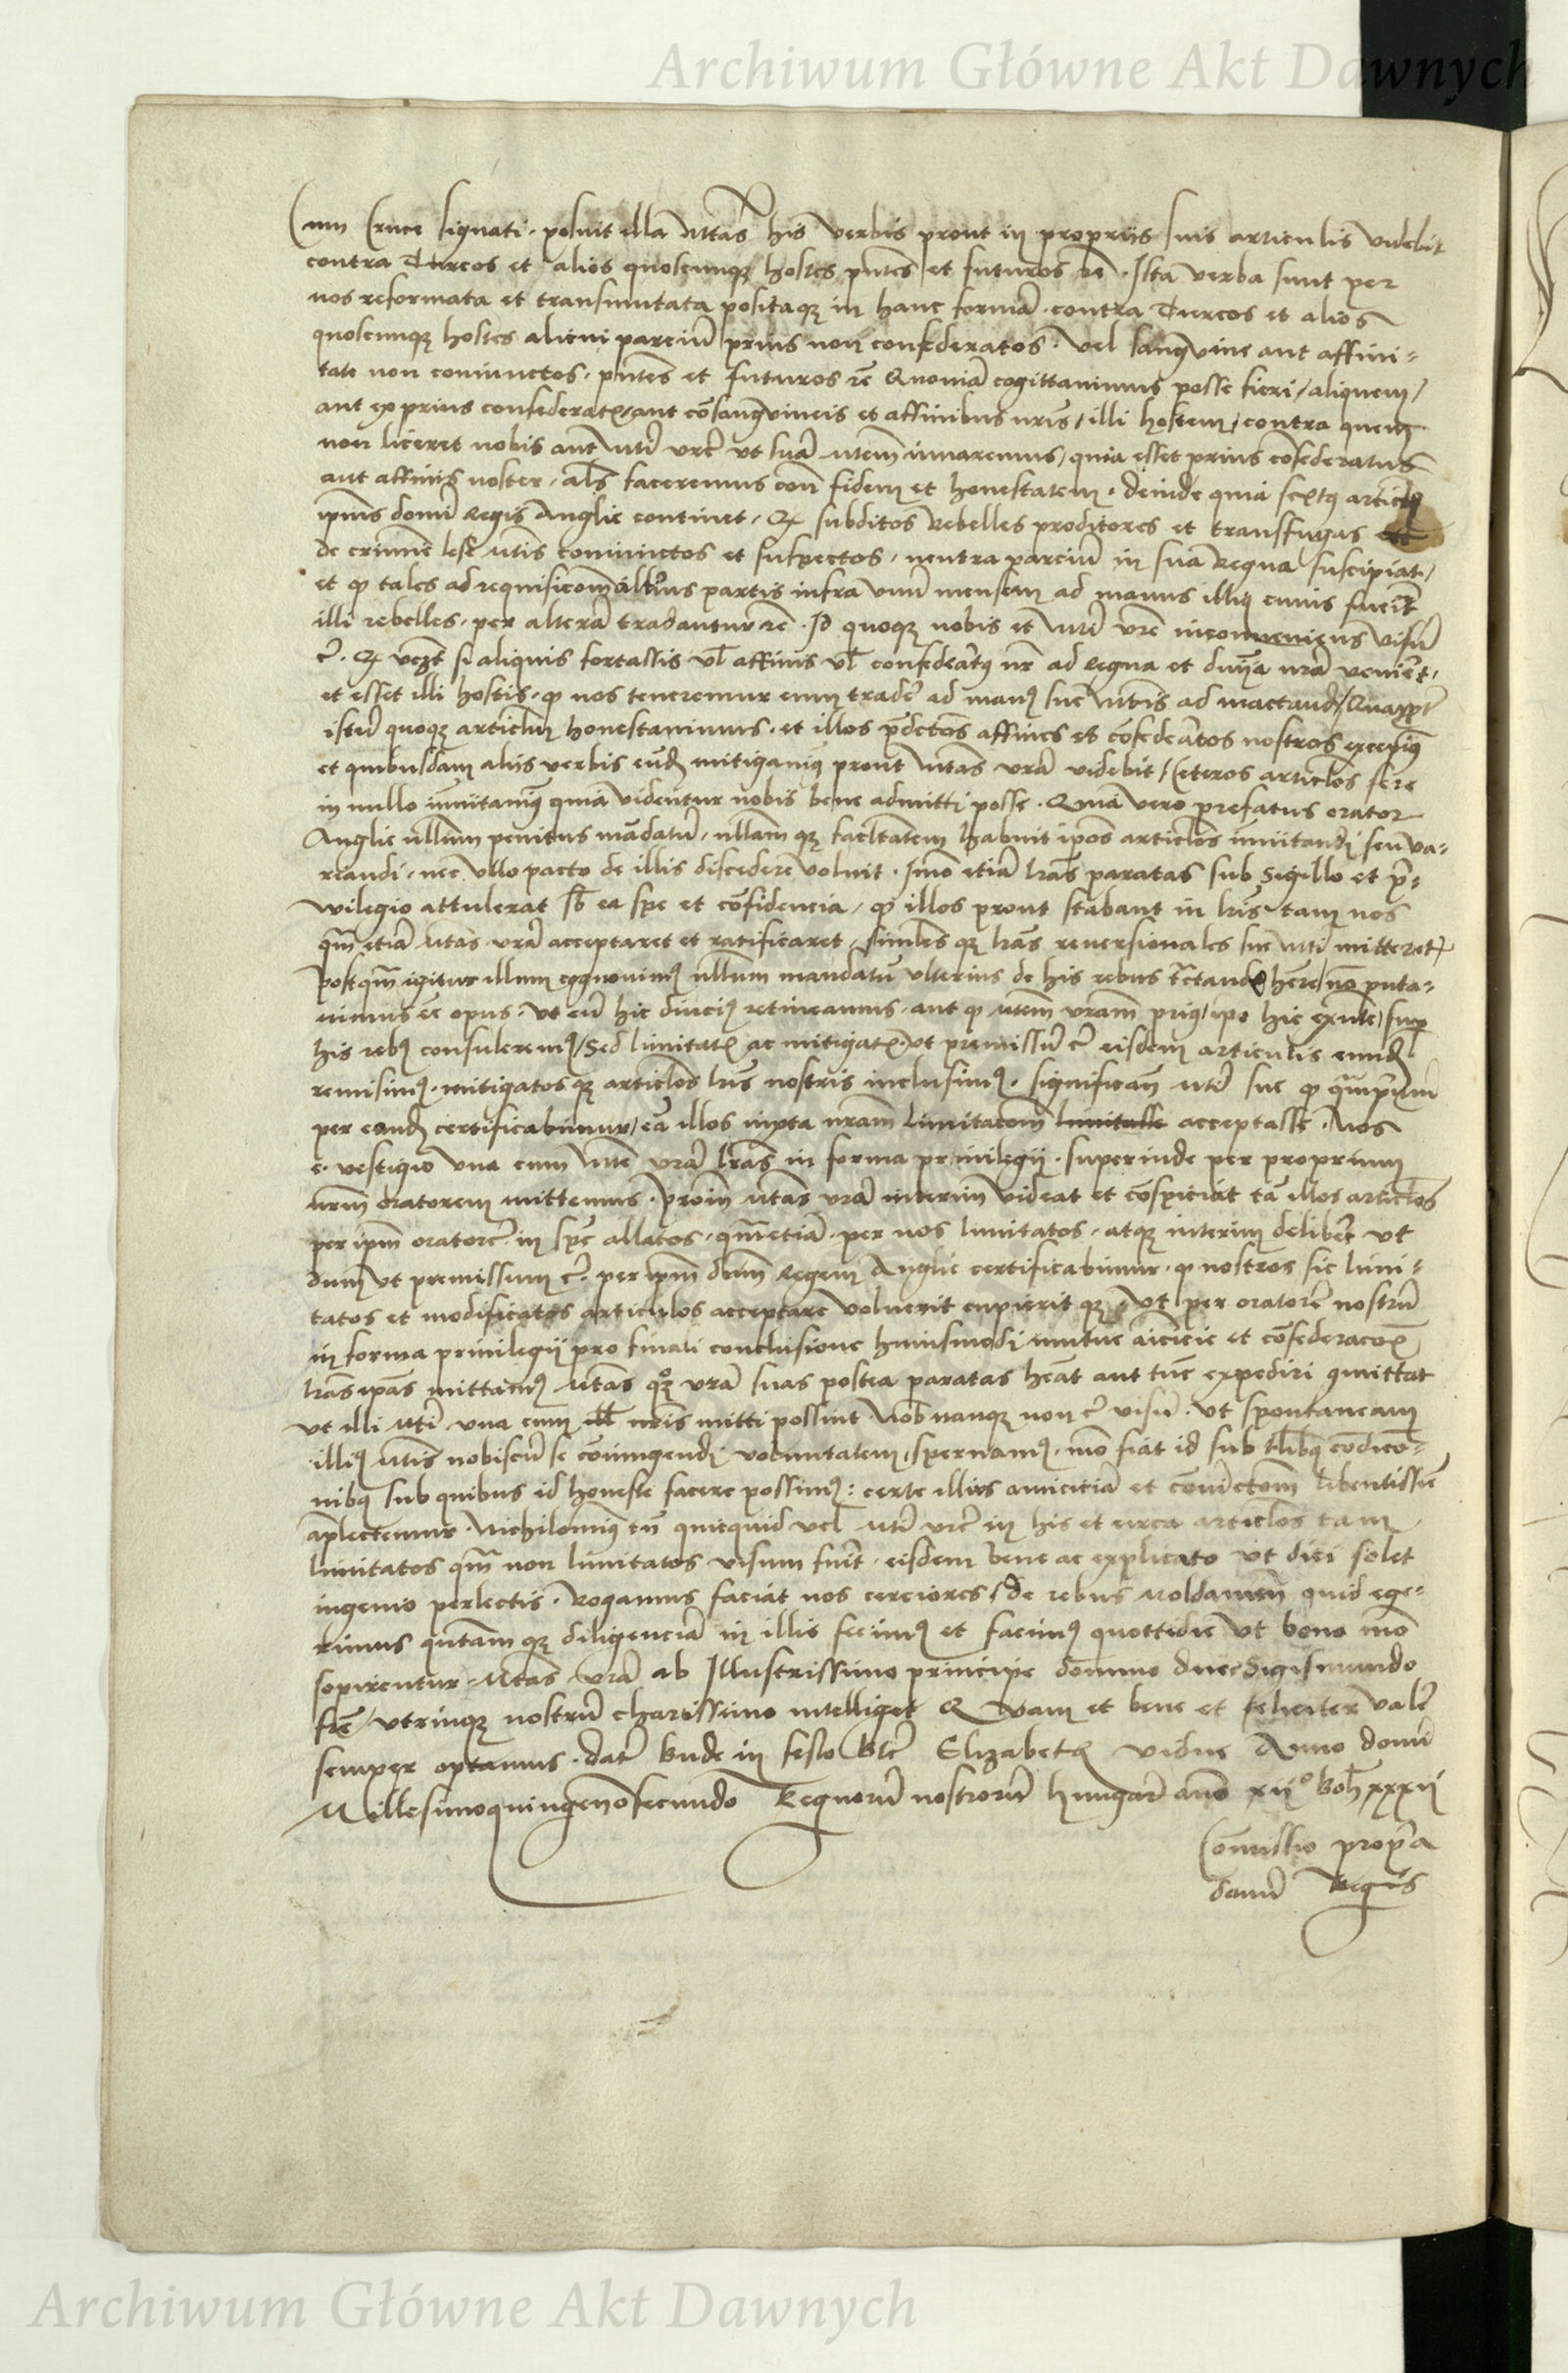 Archiwum Główne Akt Dawnych
Cum Cruce signati . posuit illa Mtas his verbis prout in propriis suis articulis videbit
contra Turcos et alios quoscunque hostes pntes et futuros rc . Ista verba sunt per
nos reformata et transmutata positaque in hanc formã . contra Turcos et alios
quoscunque hostes alicui parciũ prius non confederatos . vel sanguine aut affini-
tate non coniunctos . pntes et futuros rc Quoniã cogittavimus posse fieri / aliquem /
aut ex prius confederatis / aut cõsanguineis et affinibus nris / illi hostem / contra quem
non liceret nobis aut Mti vre ut suã Mtem iuvaremus / quia esset prius cõfederatus
aut affinis noster . als faceremus con fidem et honestatem . deinde quia sextus articls
ipius domi Regis Anglie continet . Q subditos Rebelles proditores et transfugas
de crimine lese Mtis coniunctos et suspectos . neutra parciũ in sua Regna suscipiat /
et q tales ad requisicom alterius partis infra unũ mensem ad manus illius cuius fuerint
illi rebelles . per alterã tradantur rc . Id quoque nobis et Mti vre inconveniens visũ
ẽ . Q vczt si aliquis fortassis vl affinis vl confederatus nr ad Regna et dnia nra veniret .
et esset illi hostis . q nos teneremur eum tradere ad manus sue Mtis ad mactand / Quappter
istũ quoque articlum honestavimus . et illos predctos affines et cõfederatos nostros excepimus
et quibusdam aliis verbis eund mitigavimus prout Mtas vra videbit / Ceteros articlos fere
in nullo immutavimus quia videntur nobis bene admitti posse . Quia vero prefatus orator
Anglie nullum penitus mãdatũ . nllam que facltatem habuit ipos articlos immutandi seu va-
riandi . nec ullo pacto de illis discedere voluit . Imo etiã lras paratas sub Sigillo et pri-
vilegio attulerat sb ea spe et cõfidencia . q illos prout stabant in lris tam nos
qm etiã Mtas vra acceptaret et ratificaret . similes que lras reversionales sue Mti mitteret .
Postqm igitur illum cognovimus nllum mandatũ ulterius de his rebus tractandi hêre / nõ puta-
vimus ẽe opus . ut eũ hic diucius retineamus . aut q Mtem vram prius / ipo hic exnte / sup
his rebus consuleremus / Sed limitatis ac mitigatis . ut premissũ ẽ eisdem articulis eund
remisimus . mitigatos que articlos lris nostris inclusimus . significan Mti sue q quamprimũ
per eand certificabimur / eã illos iuxta nram limitacom limitasse acceptasse . Nos
e . vestigio una cum Mte vra lras in forma privilegii . superinde per proprium
nrm oratorem mittemus . Proin Mtas vra interim videat et cõspiciat tã illos articlos
per ipm oratore . in spe allatos . qm etiã . per nos limitatos . atque interim deliberet ut
dum ut premissum ẽ . per ipm dnm Regem Anglie certificabimur . q nostros sic limi-
tatos et modificatos articulos acceptare voluerit cupierit que . Ut per oratorẽ nostrũ
in forma privilegii pro finali conclusione huiusmodi mutue aicicie et cõfederacois
lras ipas mittamus Mtas quoque vra suas postea paratas heat aut tuc expediri cmittat
ut illi Mti una cum nris mitti possint . Nob nanque non ẽ visũ . ut spontaneam
illius Mtis nobiscũ se cõiungendi voluntatem . spernamus . mo fiat id sub tlibus condico-
nibus sub quibus id honeste facere possimus : certe illius amicitiã et coniictom libentissime
amplectemur . Nichilominus tn quicquid vel Mti vre in his et circa articlos tam
limitatos qm non limitatos visum fuerit . eisdem bene ac explicato ut dici solet
ingenio perlectis . Rogamus faciat nos cerciores / De rebus Moldavien quid ege-
rimus quntam que diligenciã in illis fecimus et facimus quottidie ut bono mo
sopirentur . Mtas vra ab Illustrissimo principe domino duce Sigismundo
fre / utrinque nostrũ charissimo intelliget Quam et bene et feliciter valere
semper optamus . Datũ Bude in festo Bte Elizabeth vidue Anno domi
Millesimoquingenosecundo Regnorũ nostrorũ hungarie anõ xiiº Boh xxxii
Comissio propria
domi Regis
Archiwum Główne Akt Dawnych